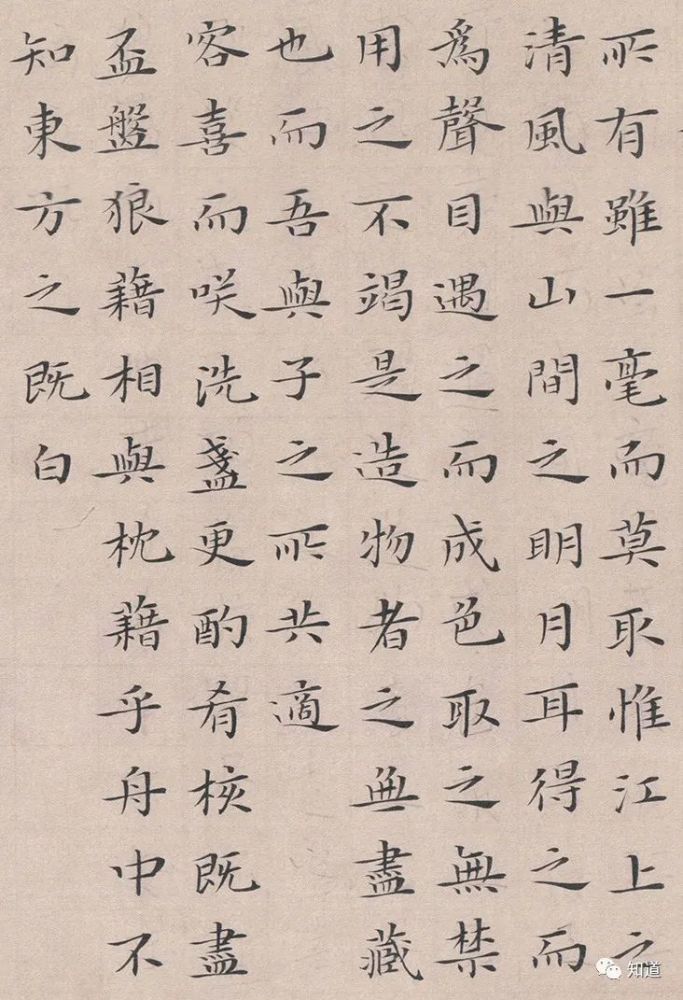 所有雖一毫而莫取惟江上之
清風與山間之明月耳得之而
為聲目遇之而成色取之無禁
用之不竭是造物者之無盡藏
也而吾與子之所共適
客喜而咲洗盞更酌肴核既盡
盃盤狼藉相與枕藉乎舟中不
知東方之既白
知道